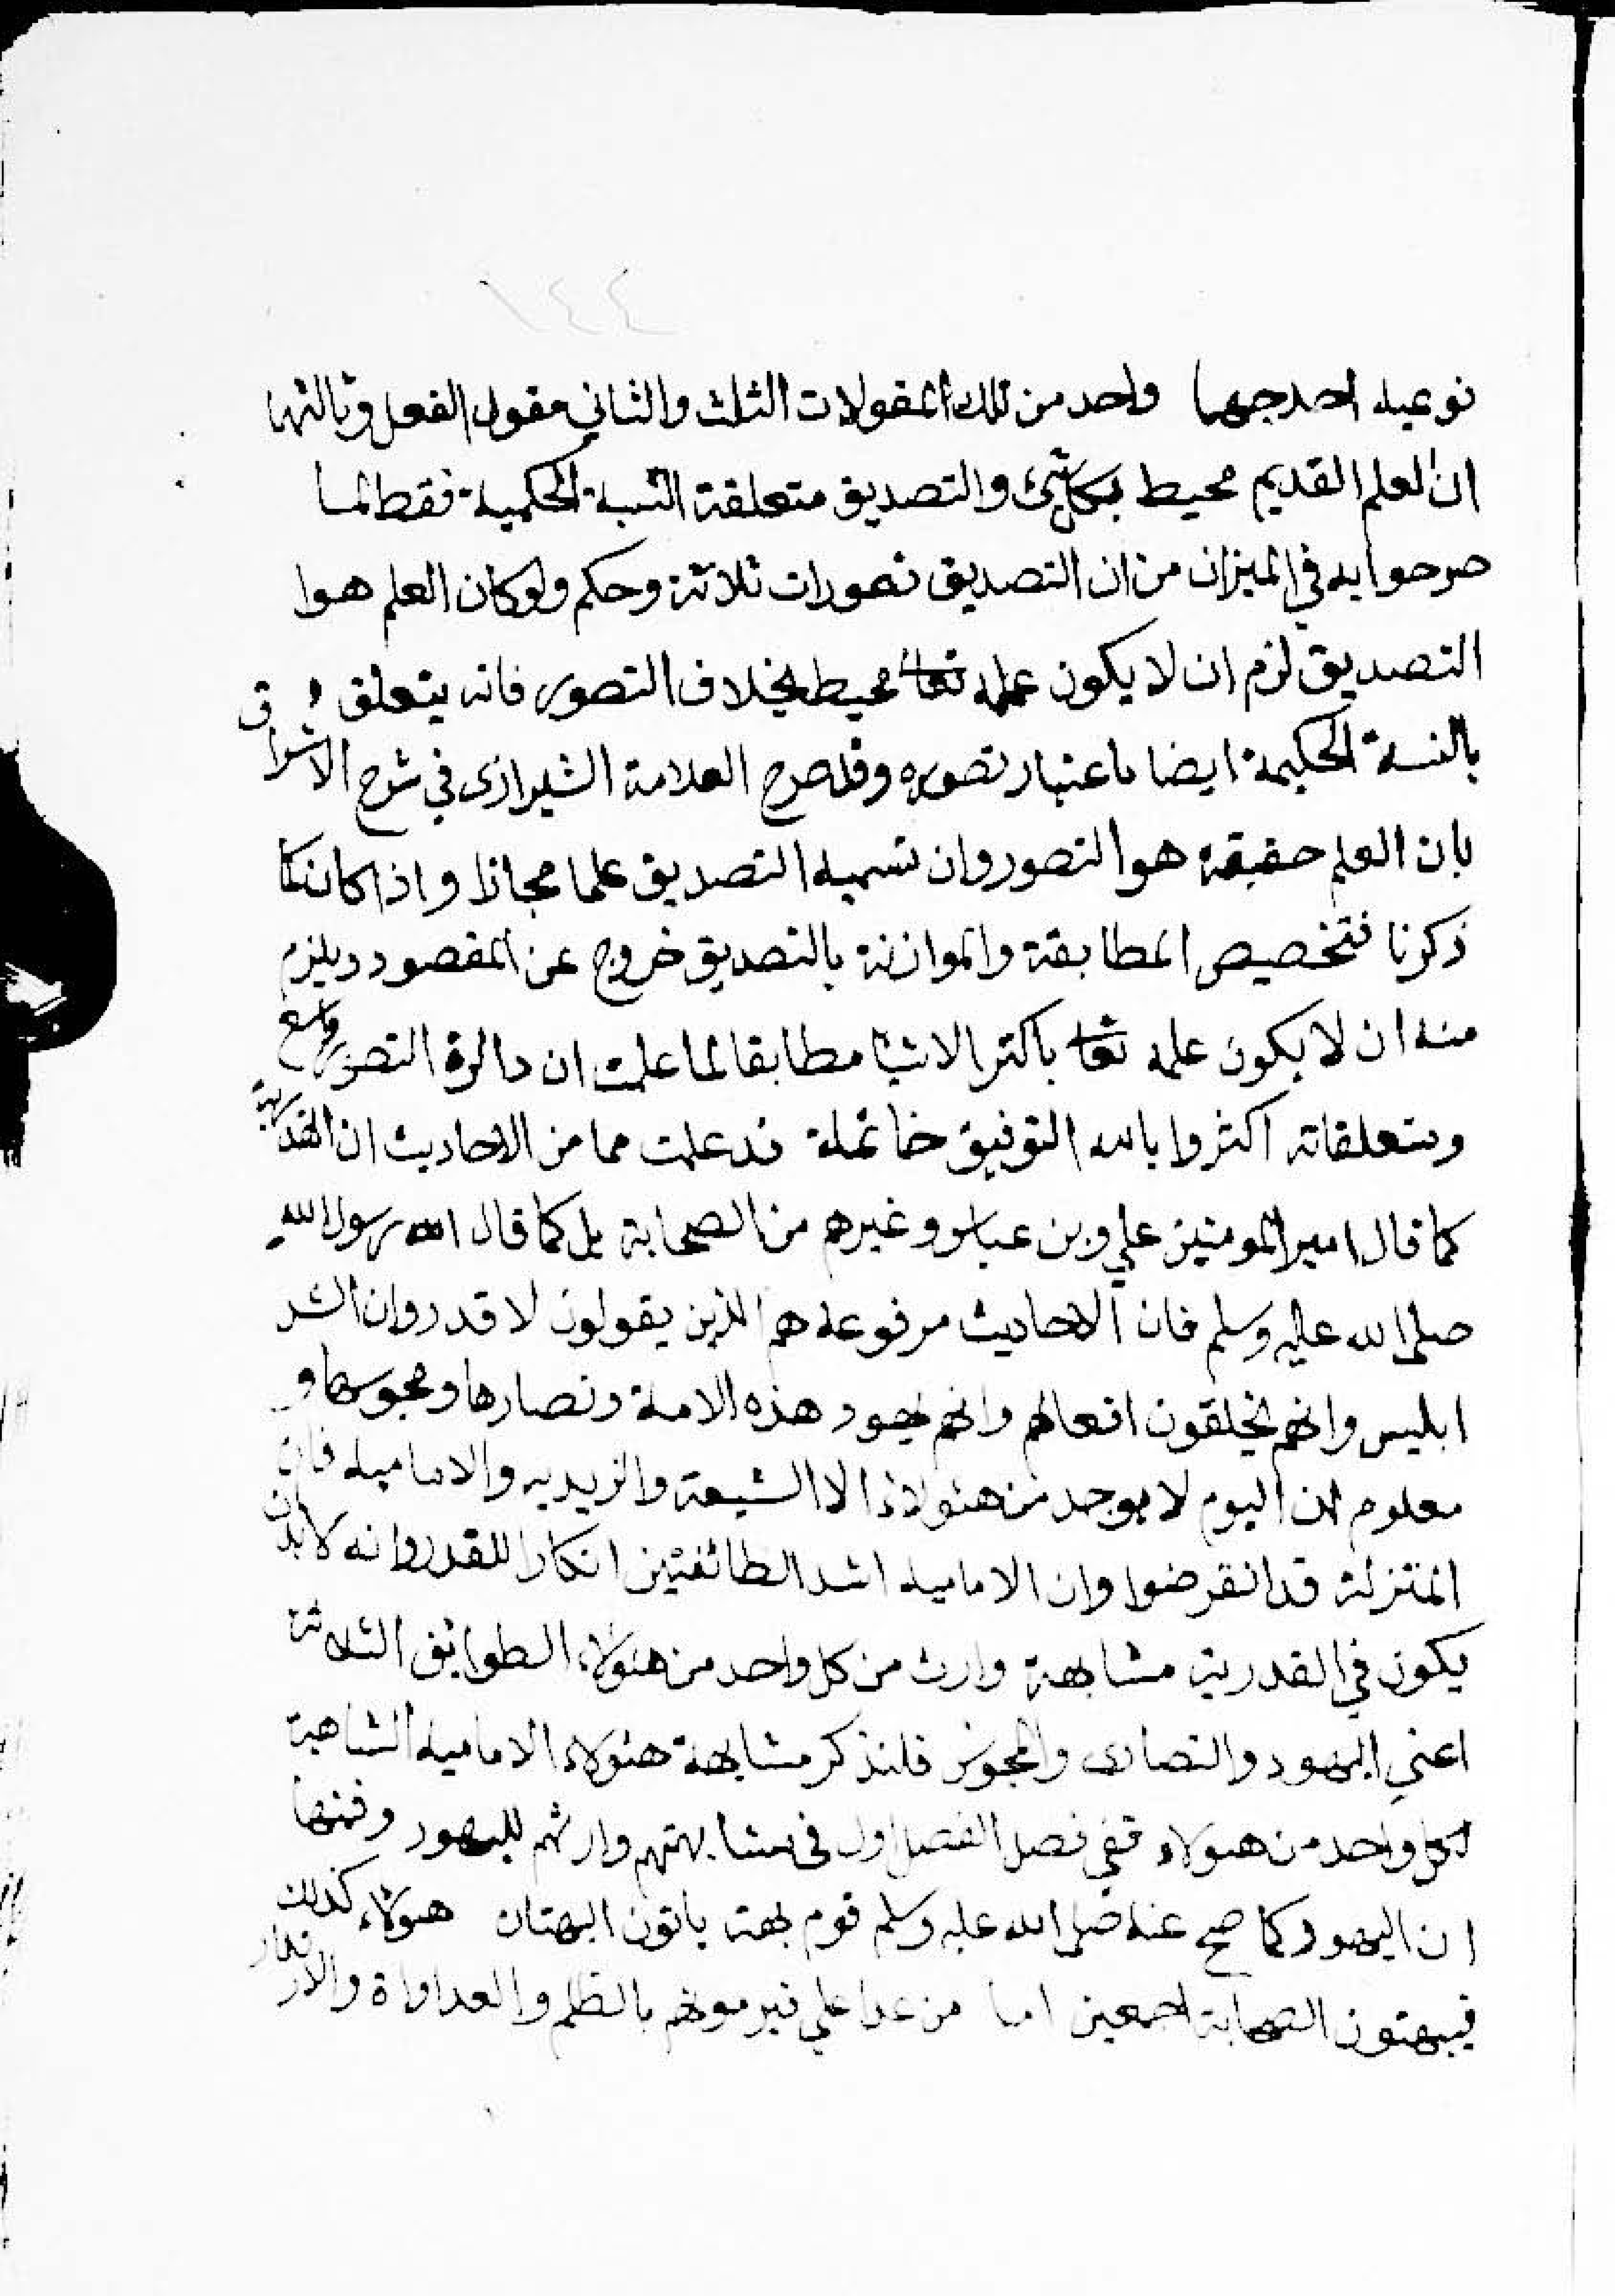 ١٤٤
نوعيه احدجهما واحد من تلك المقولات الثلث والثاني مقول الفعل وثالثها
ان العلم القديم محيط بكل شئ والتصديق متعلقة النسبة الحكمية فقط لما
صرحوا به في الميزان من ان التصديق تصورات ثلاثة وحكم ولو كان العلم هوا
التصديق لزم ان لا يكون علمه تعا محيط بخلاف التصور فانه يتعلق
بالنسبة الحكيمة ايضا باعتبار تصوره وقد صرح العلامة الشيرازى في شرح الاشراق
بان العلم حقيقة هو التصور وان تسميه التصديق علما مجازا واذا كان كما
ذكرنا فتخصيص المطابقة والموازنة بالتصديق خروج عن المقصود ويلزم
منه ان لا يكون علمه تعا باكثر الاشيا مطابقا لما علمت ان دائرة التصور واسع
ومتعلقاته اكثر وا بالله التوفيق خاتمة قد علمت مما من الاحاديث ان القدرية
كما قال امير المومنين علي وبن عباس وغيرهم من الصحابة بل كما قال رسول الله
صلى الله عليه وسلم فان الاحاديث مرفوعه هم الذين يقولون لا قدر وان الشر
ابليس وانهم يخلقون افعالهم وانهم يهود هذه الامة ونصارها ومجوسها و
معلوم ان اليوم لا يوجد من هئولاء الا الشيعة والزيديه والاماميه فان
المتنزلة قد انقرضوا وان الاماميه اشد الطائفتين انكارا للقدر وانه لابد ان
يكون في القدرية مشابهة وارث من كل واحد من هئولاء الطوايف الثلاثة
اعني اليهود والنصارى والمجوس فلنذكر مشابهة هئولاء الاماميه الشاهية
لكل واحد من هئولاء ففي فصل الفصل اول في مشابهتهم وارثهم لليهود وفمنها
ان اليهود كما صح عنه صلى الله عليه وسلم قوم بهت ياتون البهتان هئولاء كذلك
فيبهتون الصحابة اجمعين اما من عدا علي فيرمونهم بالظلم والعداواة والارتداد